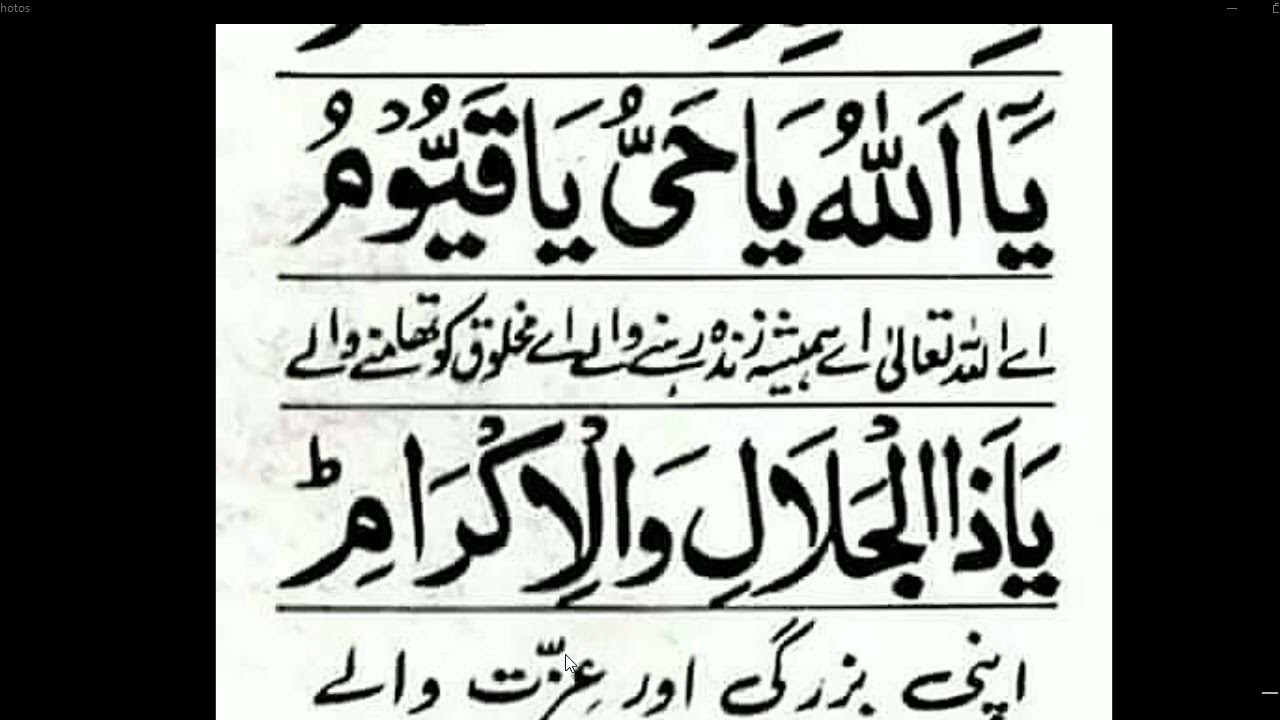 hotos
يَآ اَللّٰهُ يَا حَىُّ يَا قَيُّوْمُ
اے اللہ تعالیٰ اے ہمیشہ زندہ رہنے والے اے مخلوق کو تھامنے والے
يَا ذَا الْجَلَالِ وَالْاِكْرَامِ ط
اپنی بزرگی اور عِزّت والے